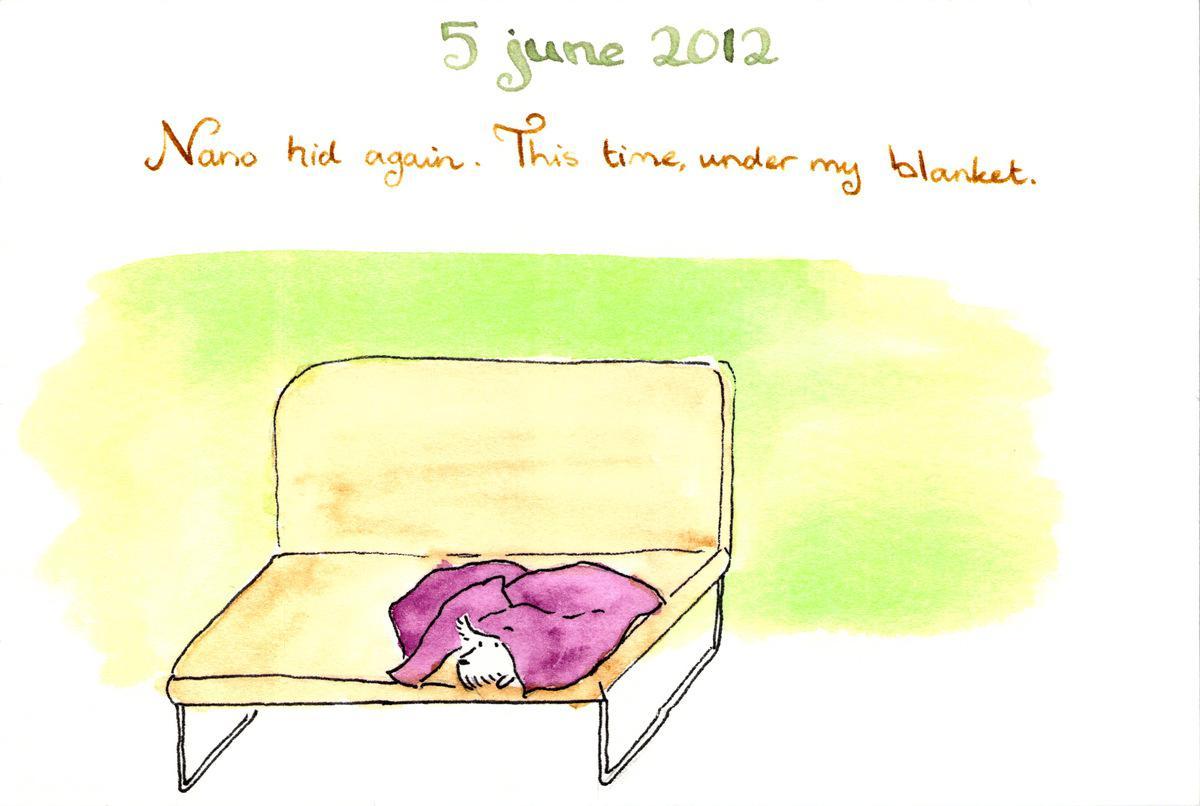 5 june 2012
Nano hid again. This time, under my blanket.